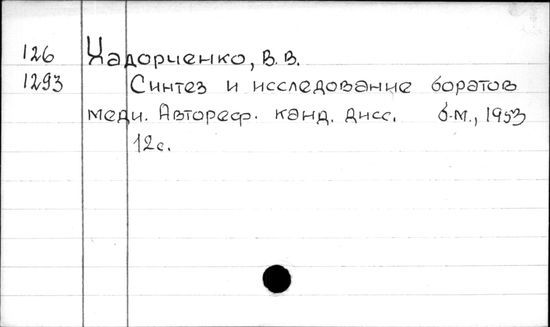 126 Хадорченко, В. В.
1293 Синтез и исследование боратов
меди. Автореф. канд. дисс. б.м., 1953
12с.